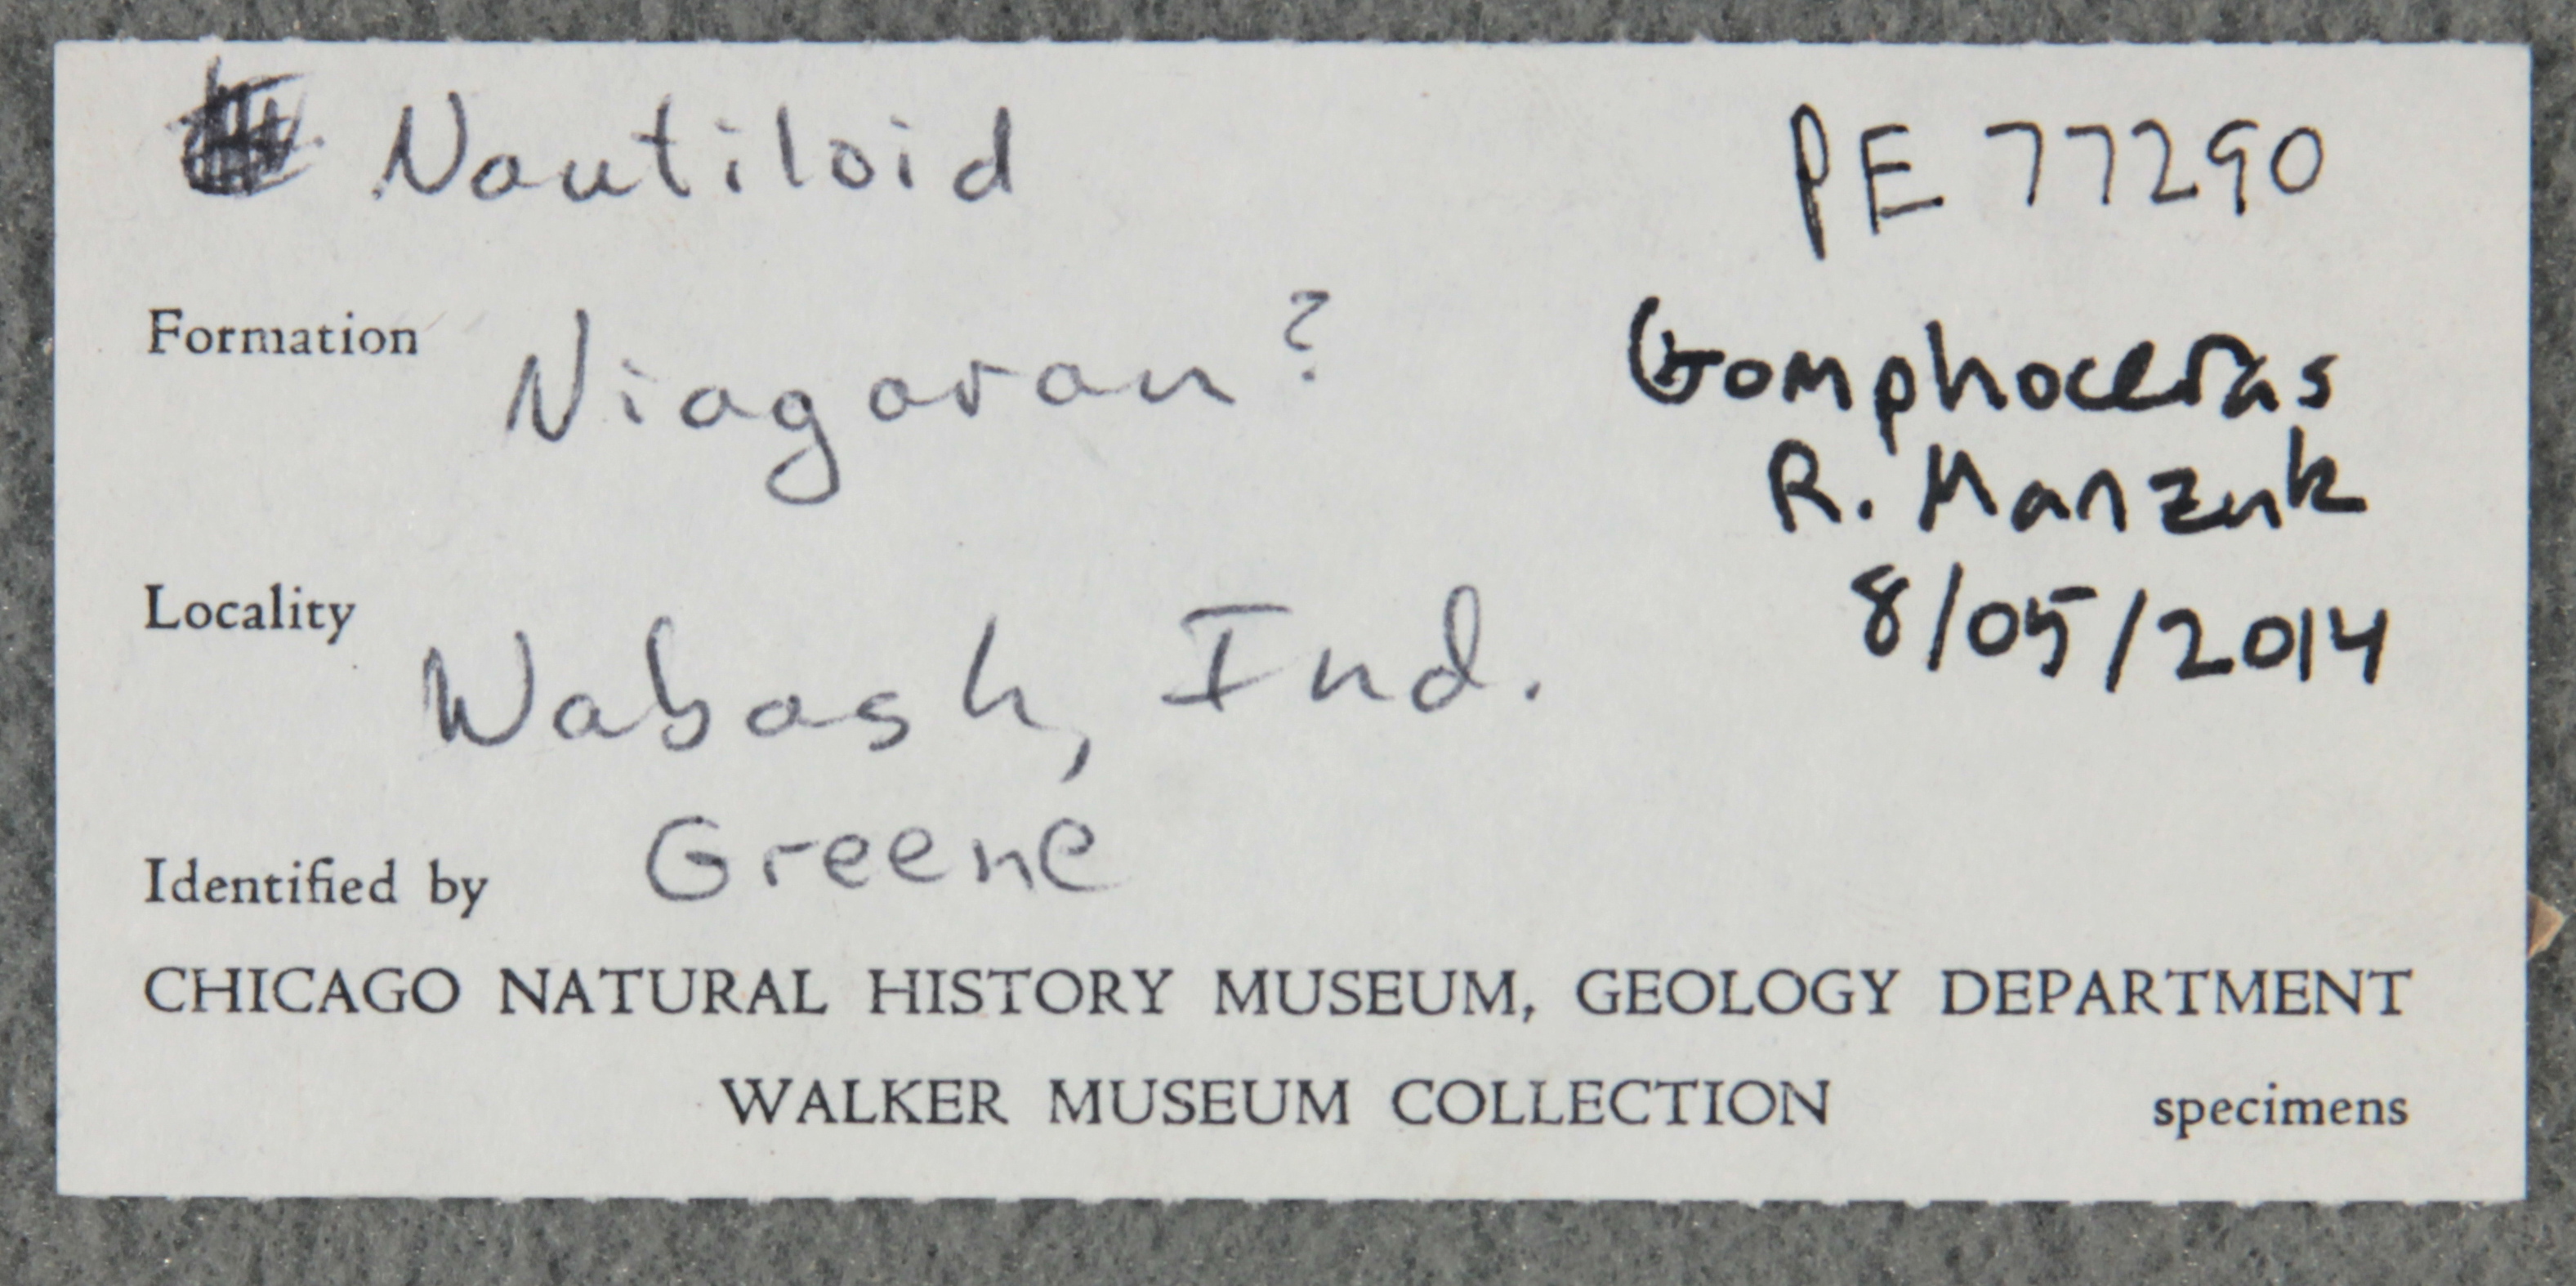 Nautiloid PE 77290
Formation Niagaran?
Gomphoceras
R. Manzuk
8/05/2014
Locality Wabash, Ind.
Identified by Greene
CHICAGO NATURAL HISTORY MUSEUM, GEOLOGY DEPARTMENT
WALKER MUSEUM COLLECTION specimens